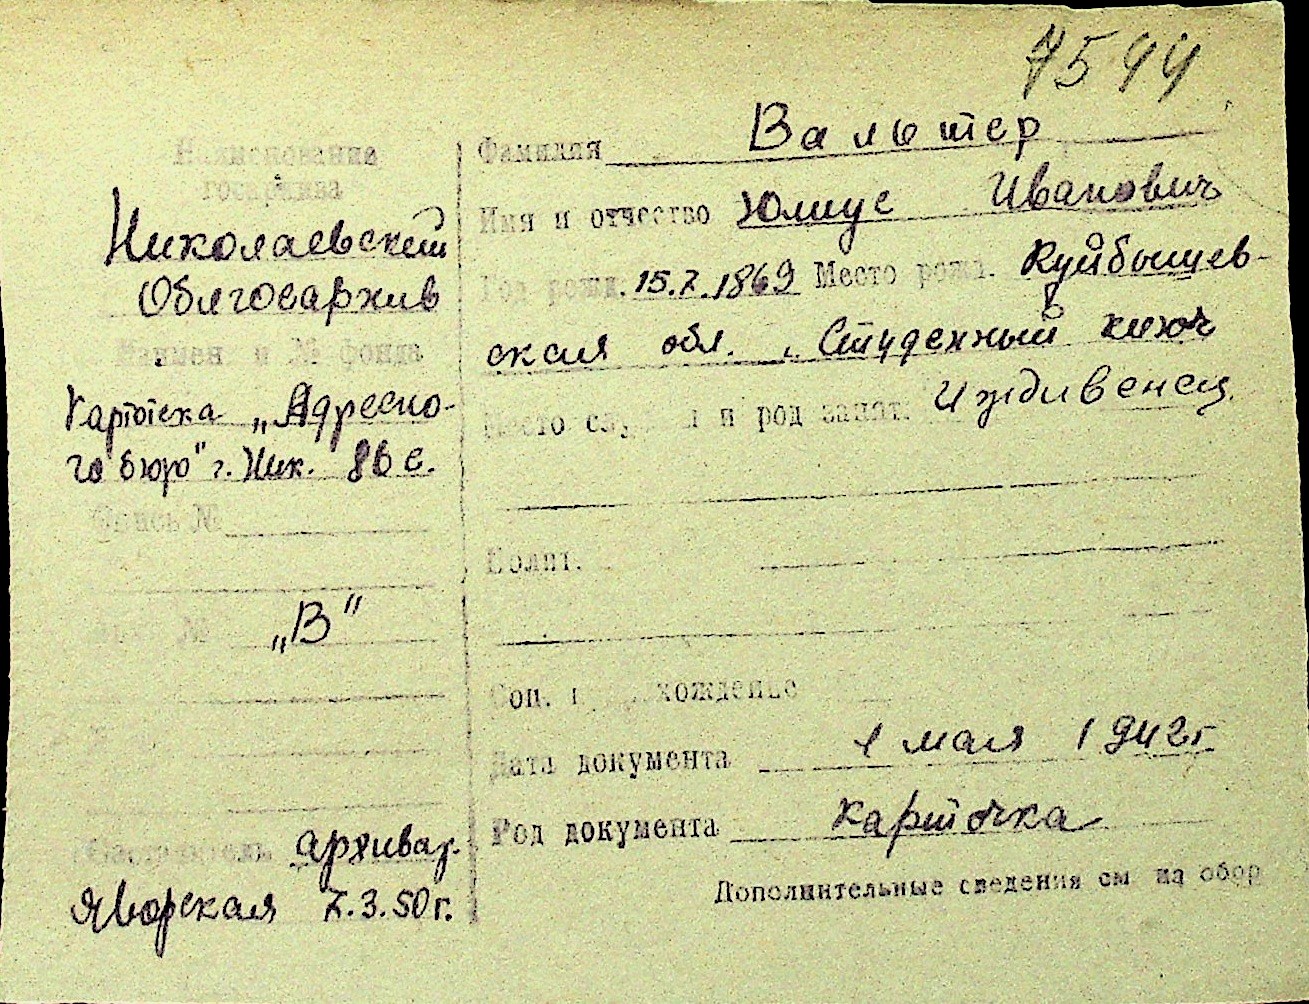 7544
Наименование
госархива
Николаевский
Облгосархив
Наимен и № фонда
Картотека „Адресно-
го бюро" г. Ник.
Опись №
№ „В"
Составитель архивар.
Яворская 7.3.50г.
Фамилия Вальтер
Имя и отчество Юлиус Иванович
Год рожд. 15.7.1869 Место рожд. Куйбышев-
ская обл., Студенный ключ
Место службы и род занят. Иждивенец
Полит.
Соц. происхождение
Дата документа 1 мая 1942г
Род документа карточка
Дополнительные сведения см на обор